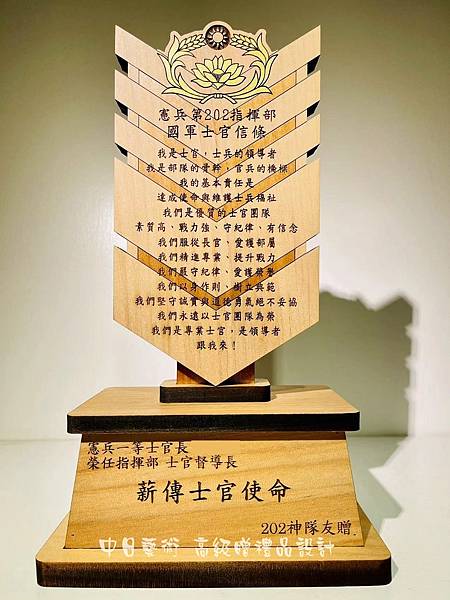 憲兵第202指揮部
國軍士官信條
我是士官，士兵的領導者
我是部隊的骨幹，官兵的橋樑
我的基本責任是
達成使命與維護士兵福祉
我們是優質的士官團隊
素質高、戰力強、守紀律、有信念
我們服從長官、愛護部屬
我們精進專業、提升戰力
我們嚴守紀律、愛護榮譽
我們以身作則、樹立典範
我們堅守誠實與道德勇氣絕不妥協
我們永遠以士官團隊為榮
我們是專業士官，是領導者
跟我來！
憲兵一等士官長
榮任指揮部 士官督導長
薪傳士官使命
202神隊友贈
中日藝術 高級贈禮品設計